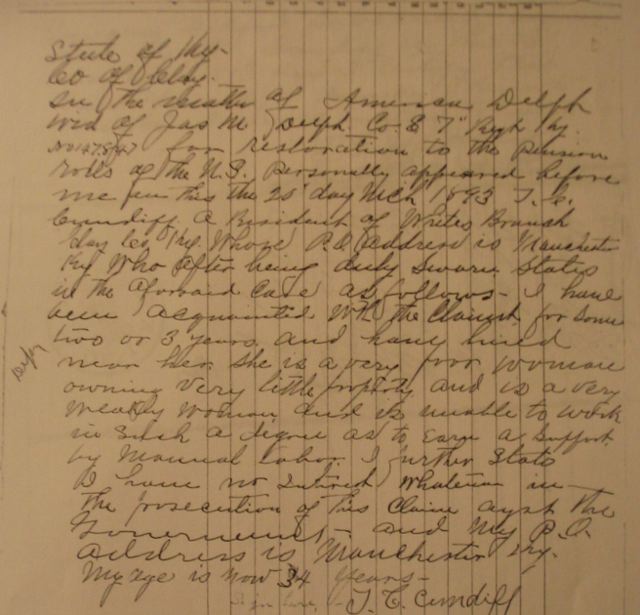 State of Ky-
Co of Clay.
In the matter of American Delph
Wid of Jas M Delph Co. E 7" Regt Ky.
for restoration to the Pension
rolls of the U.S. Personally appeared before
me on this the 25" day Mch 1893 T. C.
Cundiff a Resident of Whites Branch
Clay Co Ky. Whose P.O address is Manchester
Ky Who after being duly Sworn States
in the aforesaid Case as follows- I have
been acquainted With the Claimt for Some
two or 3 years. and have lived
near her. She is a very poor Woman
owning very little property and is a very
Weakly Woman and is unable to Work
in Such a degree as to Earn a Support
by Manual labor. I further State
I have no Intrest Whatever in
the prosecution of this Claim agst the
Government- and My P.O.
address is Manchester Ky.
My age is now 34 Years-
T. C. Cundiff
Delph